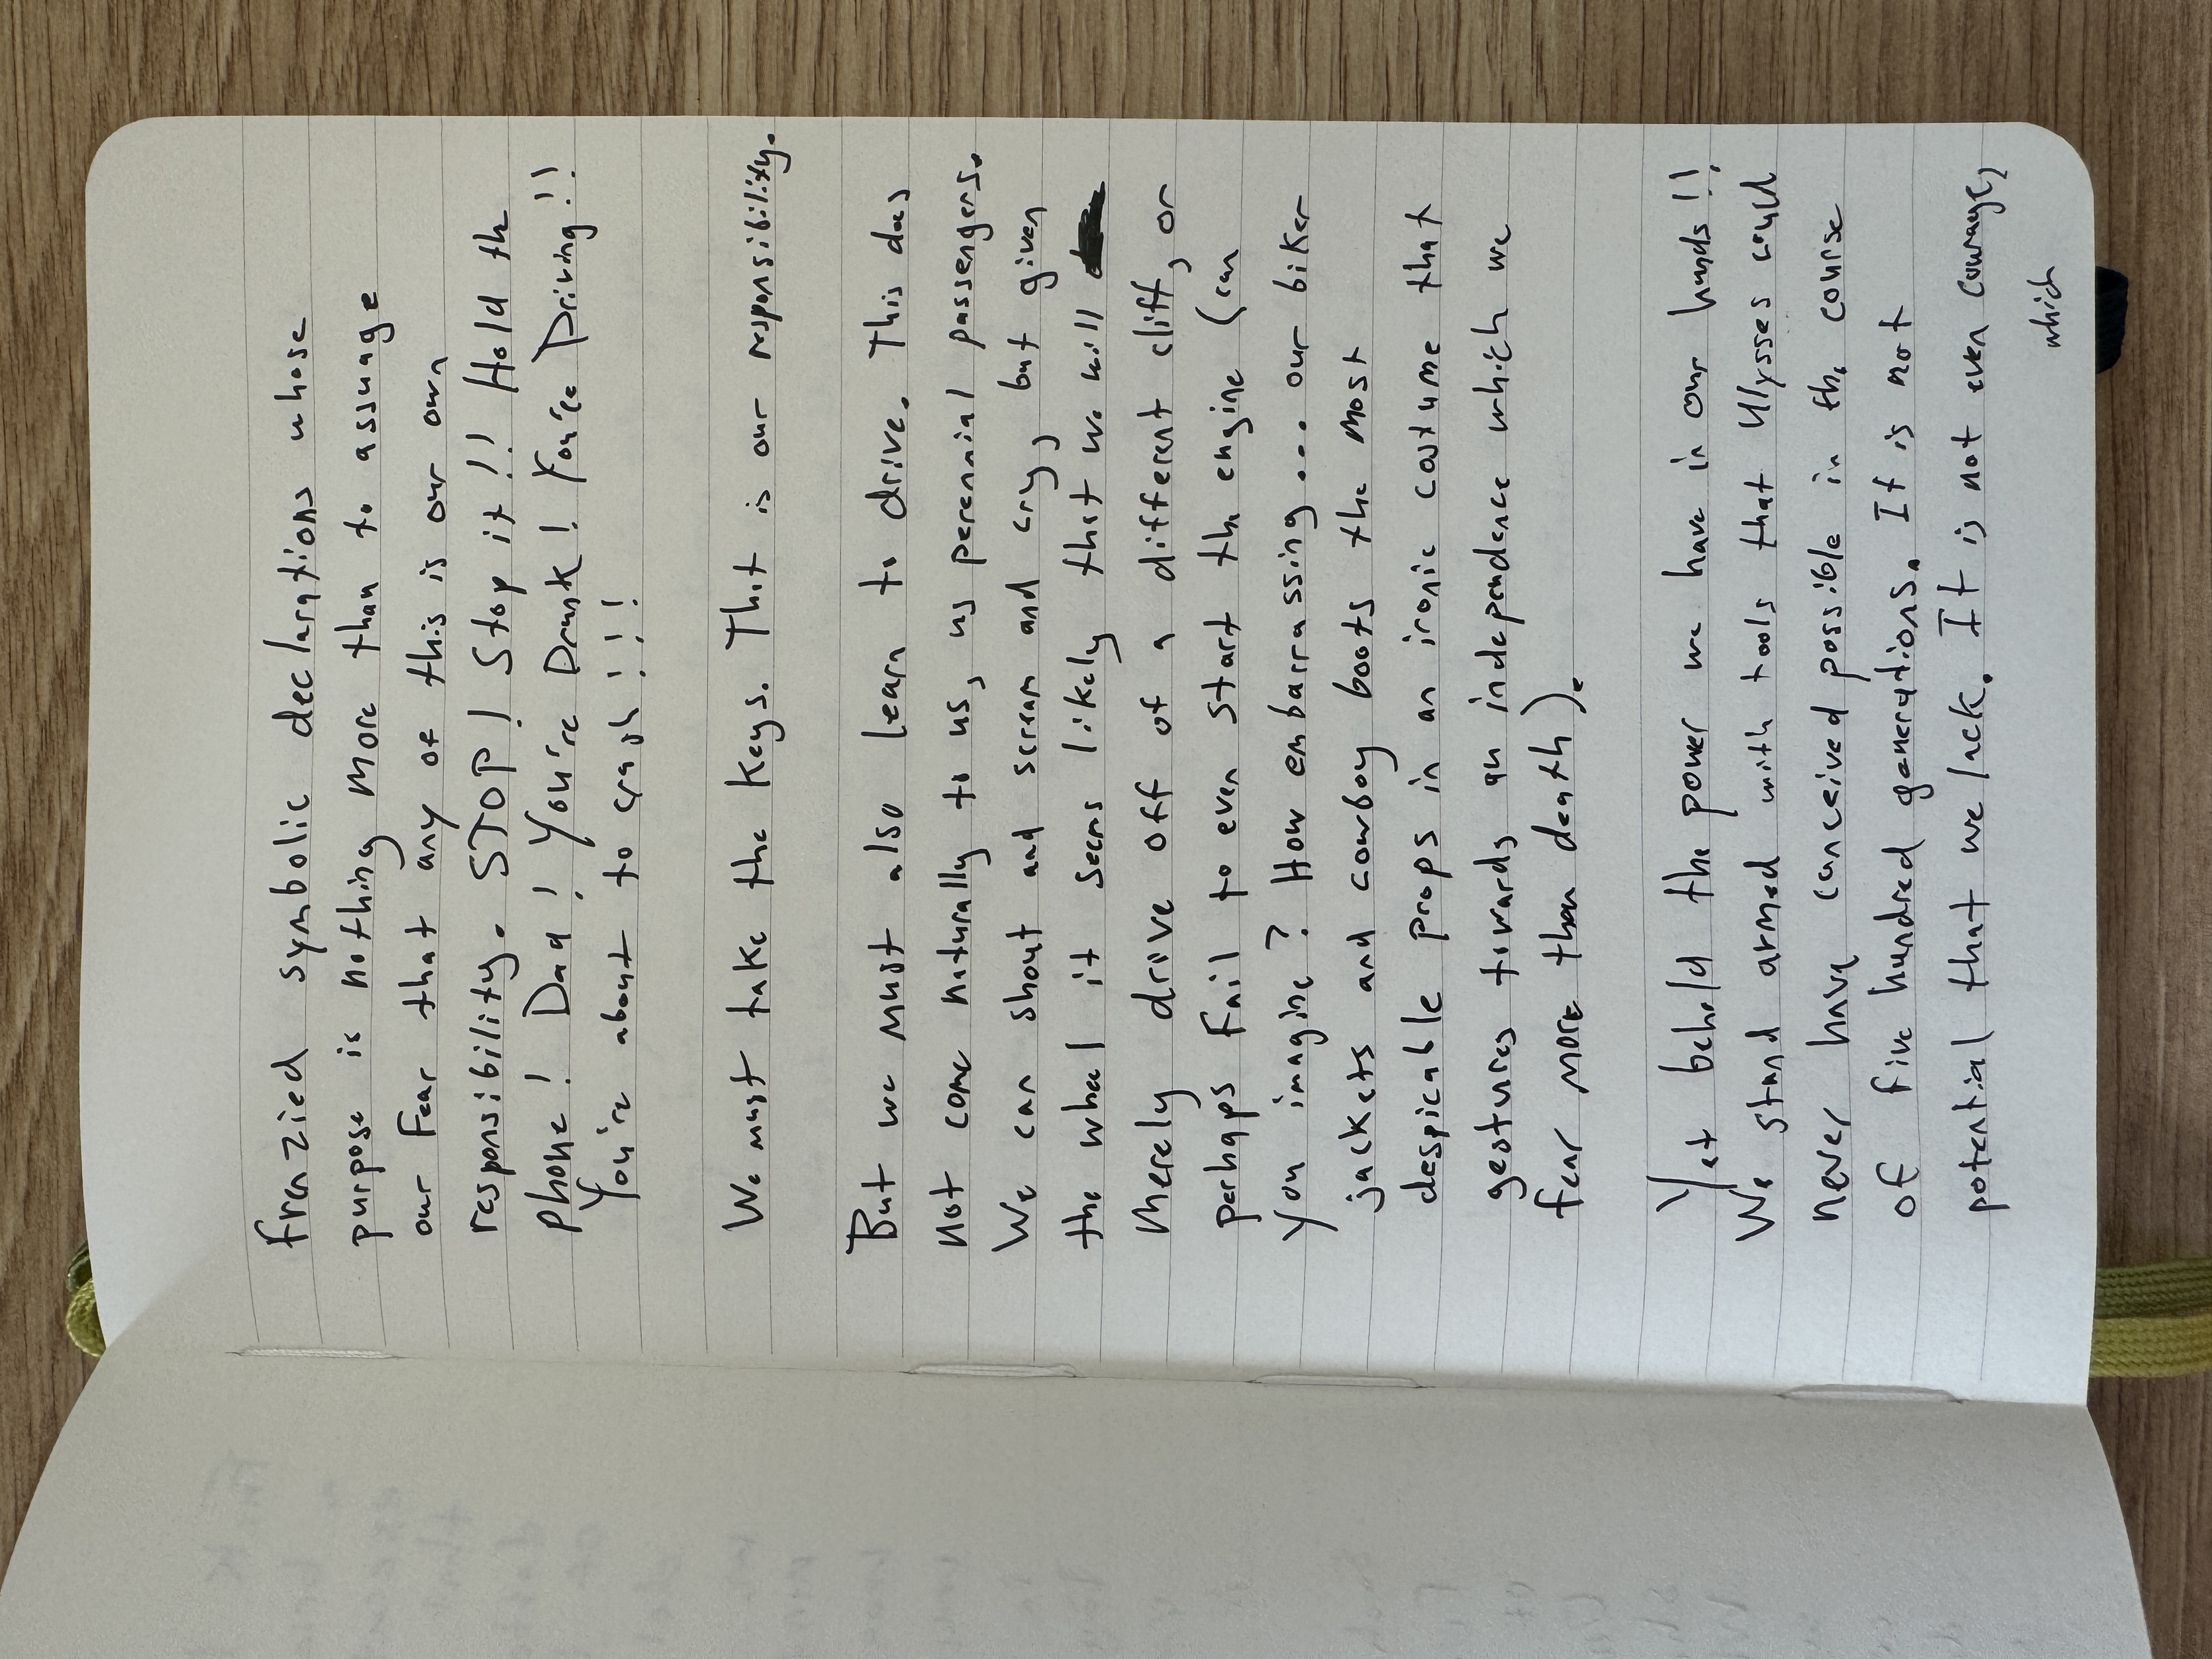 frenzied symbolic declarations whose
purpose is nothing more than to assuage
our fear that any of this is our own
responsibility. STOP! Stop it!! Hold the
phone! Dad! You're Drunk! You're Driving!!
You're about to crash!!!
We must take the keys. That is our responsibility.
But we must also learn to drive. This does
not come naturally to us, us perennial passengers.
We can shout and scream and cry, but given
the wheel it seems likely that we will
merely drive off of a different cliff, or
perhaps fail to even start the engine (can
you imagine? How embarrassing... our biker
jackets and cowboy boots the most
despicable props in an ironic costume that
gestures towards an independence which we
fear more than death).
Yet behold the power we have in our hands!!
We stand armed with tools that Ulysses could
never have conceived possible in the course
of five hundred generations. It is not
potential that we lack. It is not even courage,
which